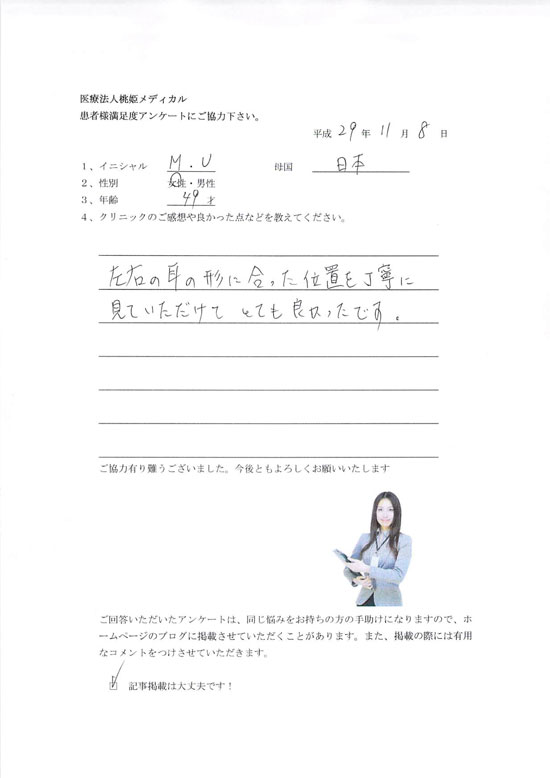 医療法人桃姫メディカル
患者様満足度アンケートにご協力下さい。
平成 29 年 11 月 8 日
1、イニシャル M.U 母国 日本
2、性別 女性・男性
3、年齢 49 才
4、クリニックのご感想や良かった点などを教えてください。
左右の耳の形に合った位置を丁寧に
見ていただけて とても良かったです。
ご協力有り難うございました。今後ともよろしくお願いいたします
ご回答いただいたアンケートは、同じ悩みをお持ちの方の手助けになりますので、ホ
ームページのブログに掲載させていただくことがあります。また、掲載の際には有用
なコメントをつけさせていただきます。
記事掲載は大丈夫です！